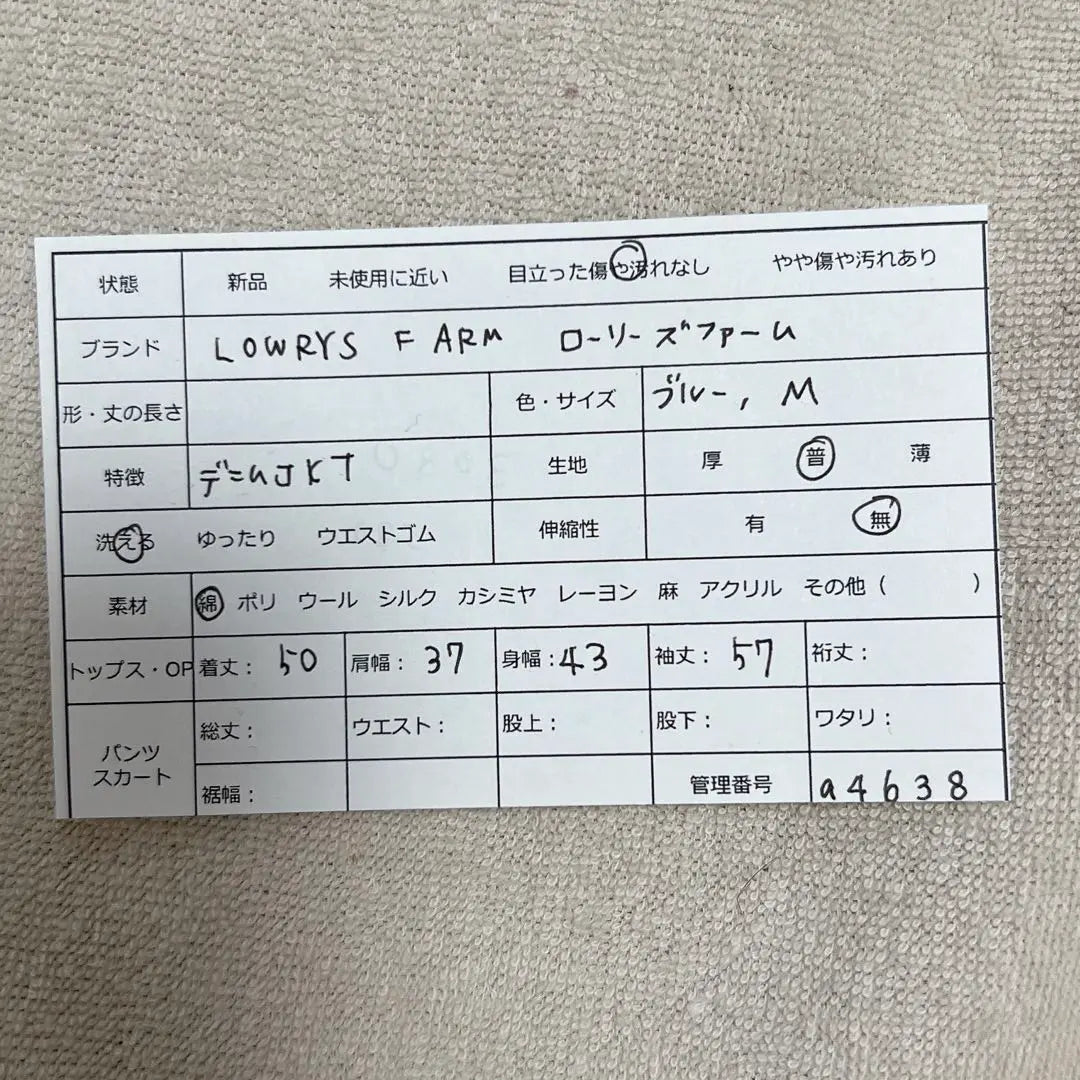 状態 新品 未使用に近い 目立った傷や汚れなし やや傷や汚れあり
ブランド LOWRYS FARM ローリーズファーム
形・丈の長さ 色・サイズ ブルー, M
特徴 デニムJKT 生地 厚 普 薄
洗える ゆったり ウエストゴム 伸縮性 有 無
素材 綿 ポリ ウール シルク カシミヤ レーヨン 麻 アクリル その他 ( )
トップス・OP 着丈: 50 肩幅: 37 身幅: 43 袖丈: 57 裄丈:
パンツ スカート 総丈: ウエスト: 股上: 股下: ワタリ:
裾幅: 管理番号 a4638